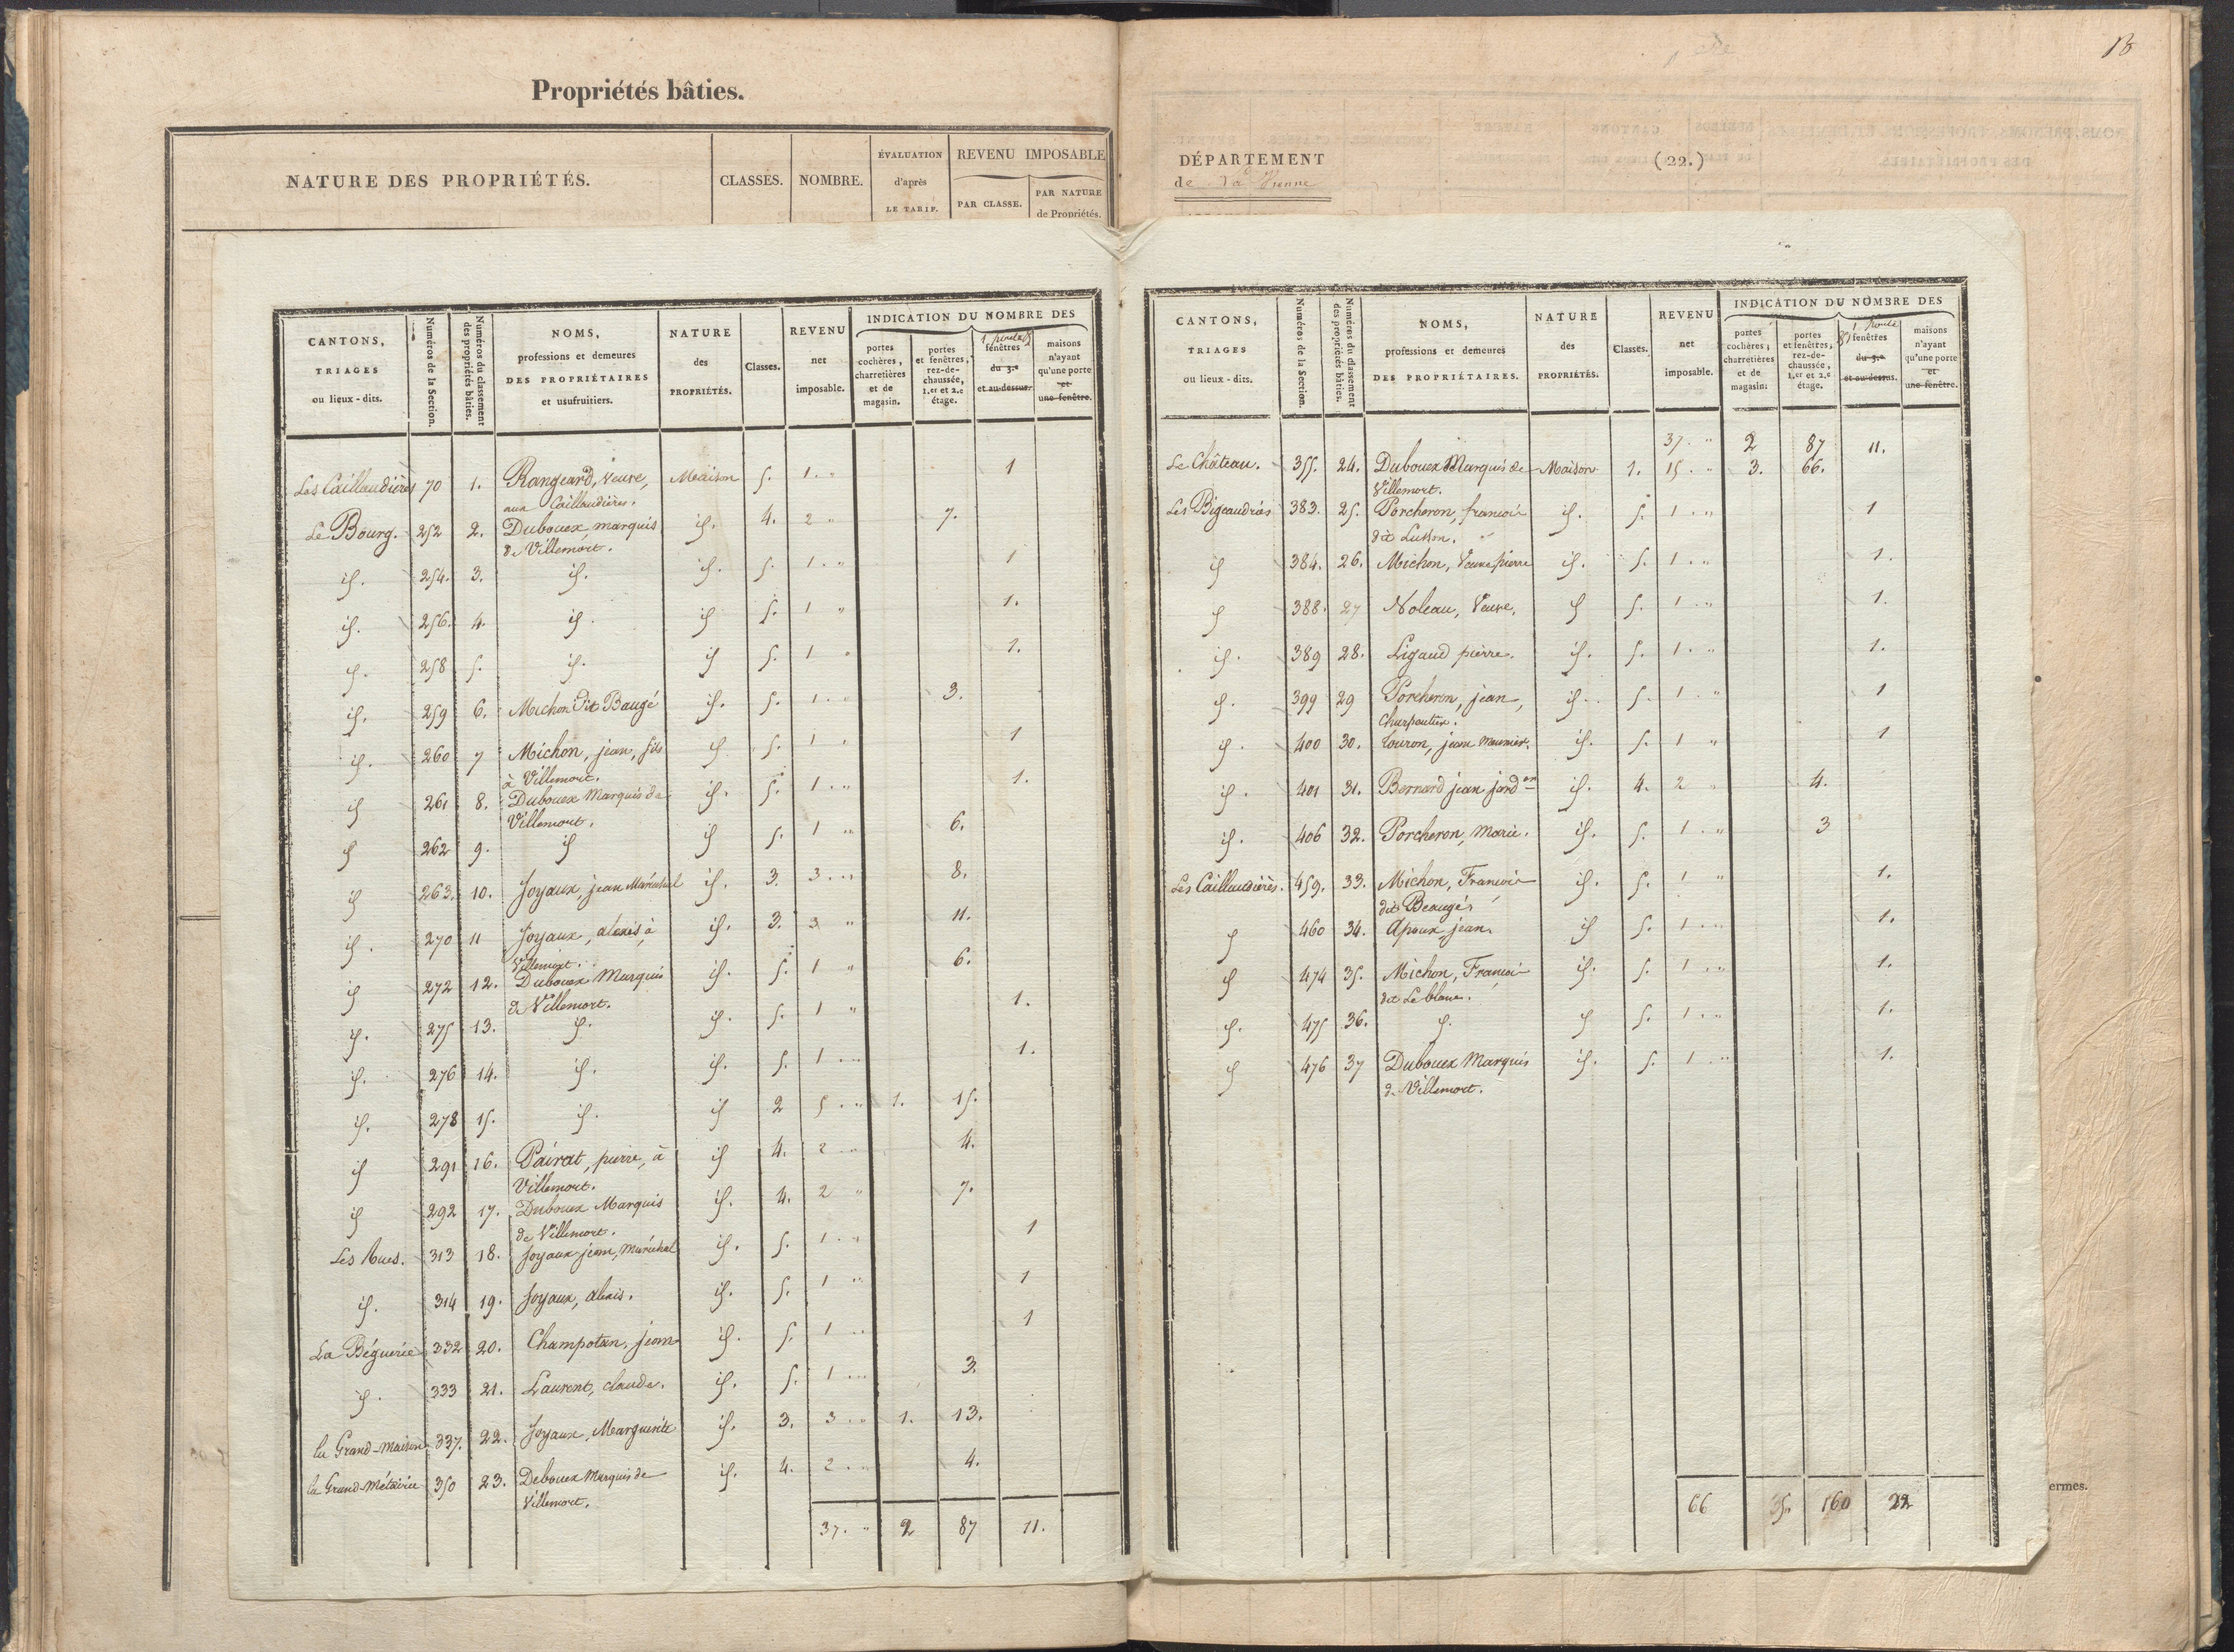 Propriétés bâties.
NATURE DES PROPRIÉTÉS. CLASSES. NOMBRE. ÉVALUATION d'après LE TARIF. REVENU IMPOSABLE PAR CLASSE. PAR NATURE de Propriétés.
CANTONS, TRIAGES ou lieux-dits. Numéros de la Section. Numéros du classement des propriétés bâties. NOMS, professions et demeures DES PROPRIÉTAIRES et usufruitiers. NATURE des PROPRIÉTÉS. Classes. REVENU net imposable. INDICATION DU NOMBRE DES portes cochères, charretières et de magasin. portes et fenêtres, rez-de-chaussée, 1.er et 2.e étage. fenêtres du 3.e et au-dessus. maisons n'ayant qu'une porte et une fenêtre.
Les Caillaudières 70 1. Rangeard, Veuve, Maison 5. 1. " 1
aux Caillaudières.
Le Bourg. 252 2. Dubouex, marquis id. 4. 2 " 7.
de Villemort.
id. 254. 3. id. id. 5. 1. " 1
id. 256. 4. id. id 5. 1 " 1.
id. 258 5. id. id 5. 1 " 1.
id. 259 6. Michon dit Baugé id. 5. 1. " 3.
id. 260 7 Michon, jean, fils id 5. 1 " 1
à Villemort.
id 261 8. Dubouex Marquis de id. 5. 1. " 1.
Villemort.
id 262 9. id id 5. 1 " 6.
id 263. 10. Joyaux, jean Maréchal id. 3. 3. " 8.
id. 270 11 Joyaux, alexis, à id. 3. 3 " 11.
Villemort.
id 272 12. Dubouex Marquis id. 5. 1 " 6.
de Villemort.
id. 275 13. id. id. 5. 1 " 1.
id. 276 14. id. id. 5. 1. " 1.
id. 278 15. id. id 2 5. " 1. 15.
id 291 16. Pairat, pierre, à id 4. 2 " 4.
Villemort.
id 292 17. Dubouex Marquis id. 4. 2 " 7.
de Villemort.
Les Rues. 313 18. Joyaux jean, Maréchal id. 5. 1. " 1
id. 314 19. Joyaux, alexis. id. 5. 1 " 1
La Béguerie 332 20. Champotan, jean id. 5. 1 " 1
id. 333 21. Laurent, claude. id. 5. 1 " 3.
la Grand-Maison 337. 22. Joyaux, Marguerite id. 3. 3. " 1. 13.
la Grand-Métairie 350 23. Debouex Marquis de id. 4. 2. " 4.
Villemort.
37. " 2 87 11.
18
DÉPARTEMENT (22.)
de La Vienne
CANTONS, TRIAGES ou lieux-dits. Numéros de la Section. Numéros du classement des propriétés bâties. NOMS, professions et demeures DES PROPRIÉTAIRES. NATURE des PROPRIÉTÉS. Classes. REVENU net imposable. INDICATION DU NOMBRE DES portes cochères, charretières et de magasin. portes et fenêtres, rez-de-chaussée, 1.er et 2.e étage. fenêtres du 3.e et au-dessus. maisons n'ayant qu'une porte et une fenêtre.
37. " 2 87 11.
Le Château. 355. 24. Dubouex Marquis de Maison 1. 15. " 3. 66.
Villemort.
Les Bigeaudries 383. 25. Porcheron, francois id. 5. 1. " 1
dit Lusson.
id 384. 26. Michon, Veuve pierre id. 5. 1. " 1.
id 388. 27 Noleau, Veuve. id 5. 1. " 1.
id. 389 28. Ligaud pierre. id. 5. 1. " 1.
id. 399 29 Porcheron, jean, id. 5. 1. " 1
Charpentier.
id. 400 30. Touron, jean Meunier. id. 5. 1 " 1
id. 401 31. Bernard jean jard.er id. 4. 2 " 4.
id. 406 32. Porcheron, Marie. id. 5. 1. " 3
Les Caillaudières. 459. 33. Michon, Francois id. 5. 1 " 1.
dit Beaugés
id 460 34. Apoux jean. id 5. 1. " 1.
id 474 35. Michon, Francois id. 5. 1. " 1.
dit Leblanc.
id. 475 36. id. id 5. 1. " 1.
id 476 37 Dubouex Marquis id. 5. 1. " 1.
de Villemort.
66 5. 160 22
ermes.